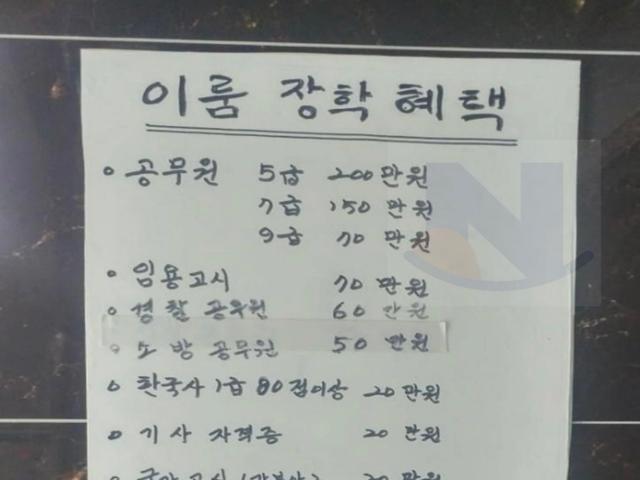 이룸 장학 혜택
○ 공무원 5급 200만원
7급 150만원
9급 70만원
○ 임용고시 70만원
○ 경찰 공무원 60만원
○ 소방 공무원 50만원
○ 한국사 1급 80점이상 20만원
○ 기사 자격증 20만원
20만원
N